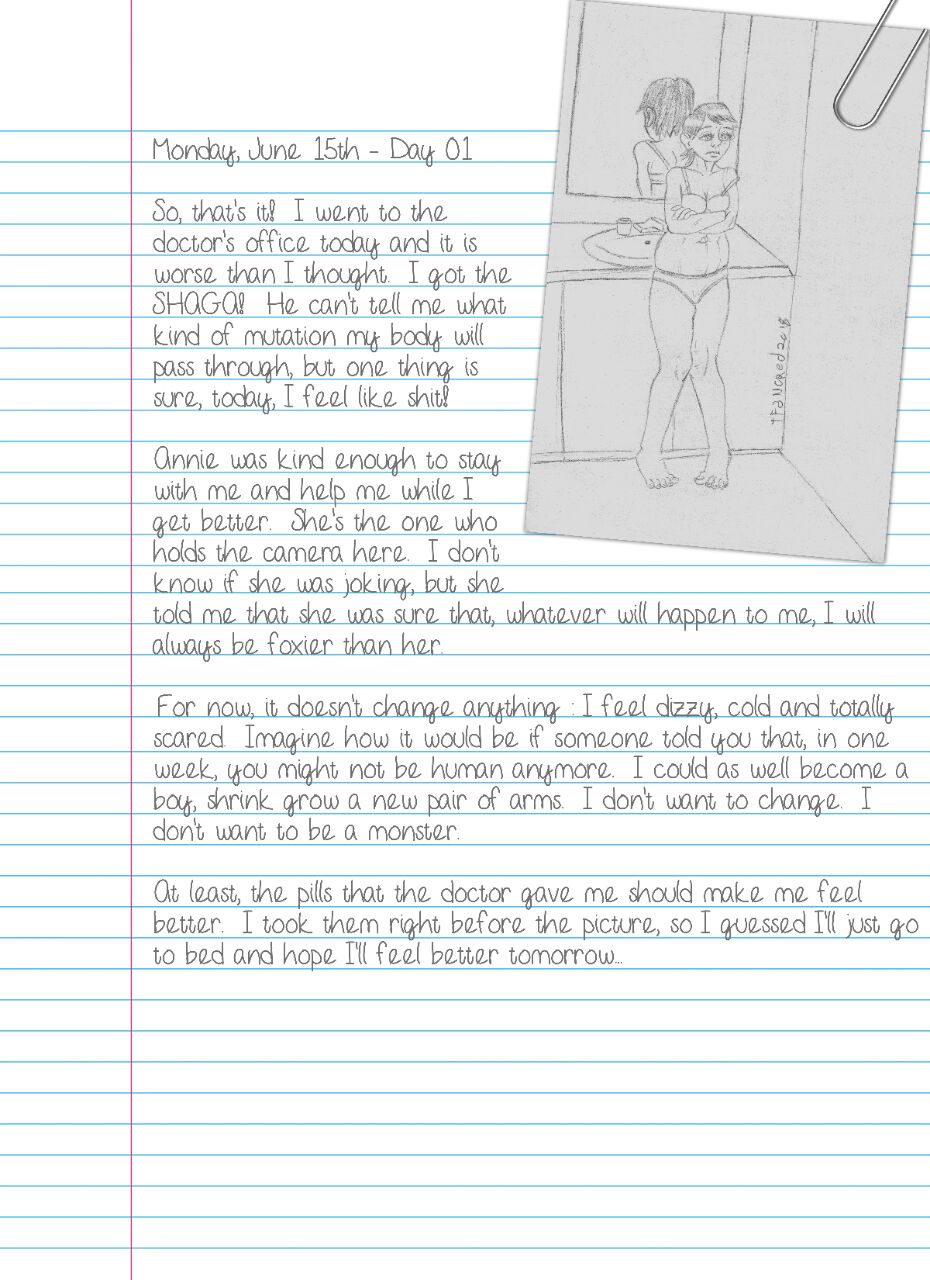 Monday, June 15th - Day 01
So, that's it! I went to the
doctor's office today and it is
worse than I thought. I got the
SHAGA! He can't tell me what
kind of mutation my body will
pass through, but one thing is
sure, today, I feel like shit!
Annie was kind enough to stay
with me and help me while I
get better. She's the one who
holds the camera here. I don't
know if she was joking, but she
told me that she was sure that, whatever will happen to me, I will
always be foxier than her.
For now, it doesn't change anything : I feel dizzy, cold and totally
scared. Imagine how it would be if someone told you that, in one
week, you might not be human anymore. I could as well become a
boy, shrink grow a new pair of arms. I don't want to change. I
don't want to be a monster.
At least, the pills that the doctor gave me should make me feel
better. I took them right before the picture, so I guessed I'll just go
to bed and hope I'll feel better tomorrow...